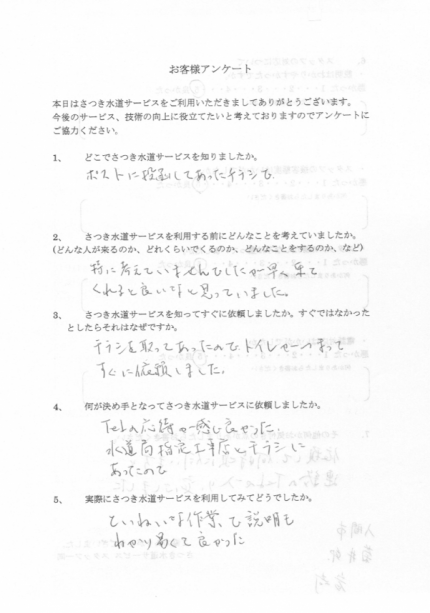 お客様アンケート
本日はさつき水道サービスをご利用いただきましてありがとうございます。
今後のサービス、技術の向上に役立てたいと考えておりますのでアンケートに
ご協力ください。
1、 どこでさつき水道サービスを知りましたか。
ポストに投函してあったチラシで
2、 さつき水道サービスを利用する前にどんなことを考えていましたか。
(どんな人が来るのか、どれくらいでくるのか、どんなことをするのか、など)
特に考えていませんでしたが早く来て
くれると良いなと思っていました。
3、 さつき水道サービスを知ってすぐに依頼しましたか。すぐではなかった
としたらそれはなぜですか。
チラシを取ってあったのでトイレがつまって
すぐに依頼しました。
4、 何が決め手となってさつき水道サービスに依頼しましたか。
Telの応待が感じ良かった。
水道局指定工事店とチラシに
あったので
5、 実際にさつき水道サービスを利用してみてどうでしたか。
ていねいな作業、で説明も
わかり易くて良かった